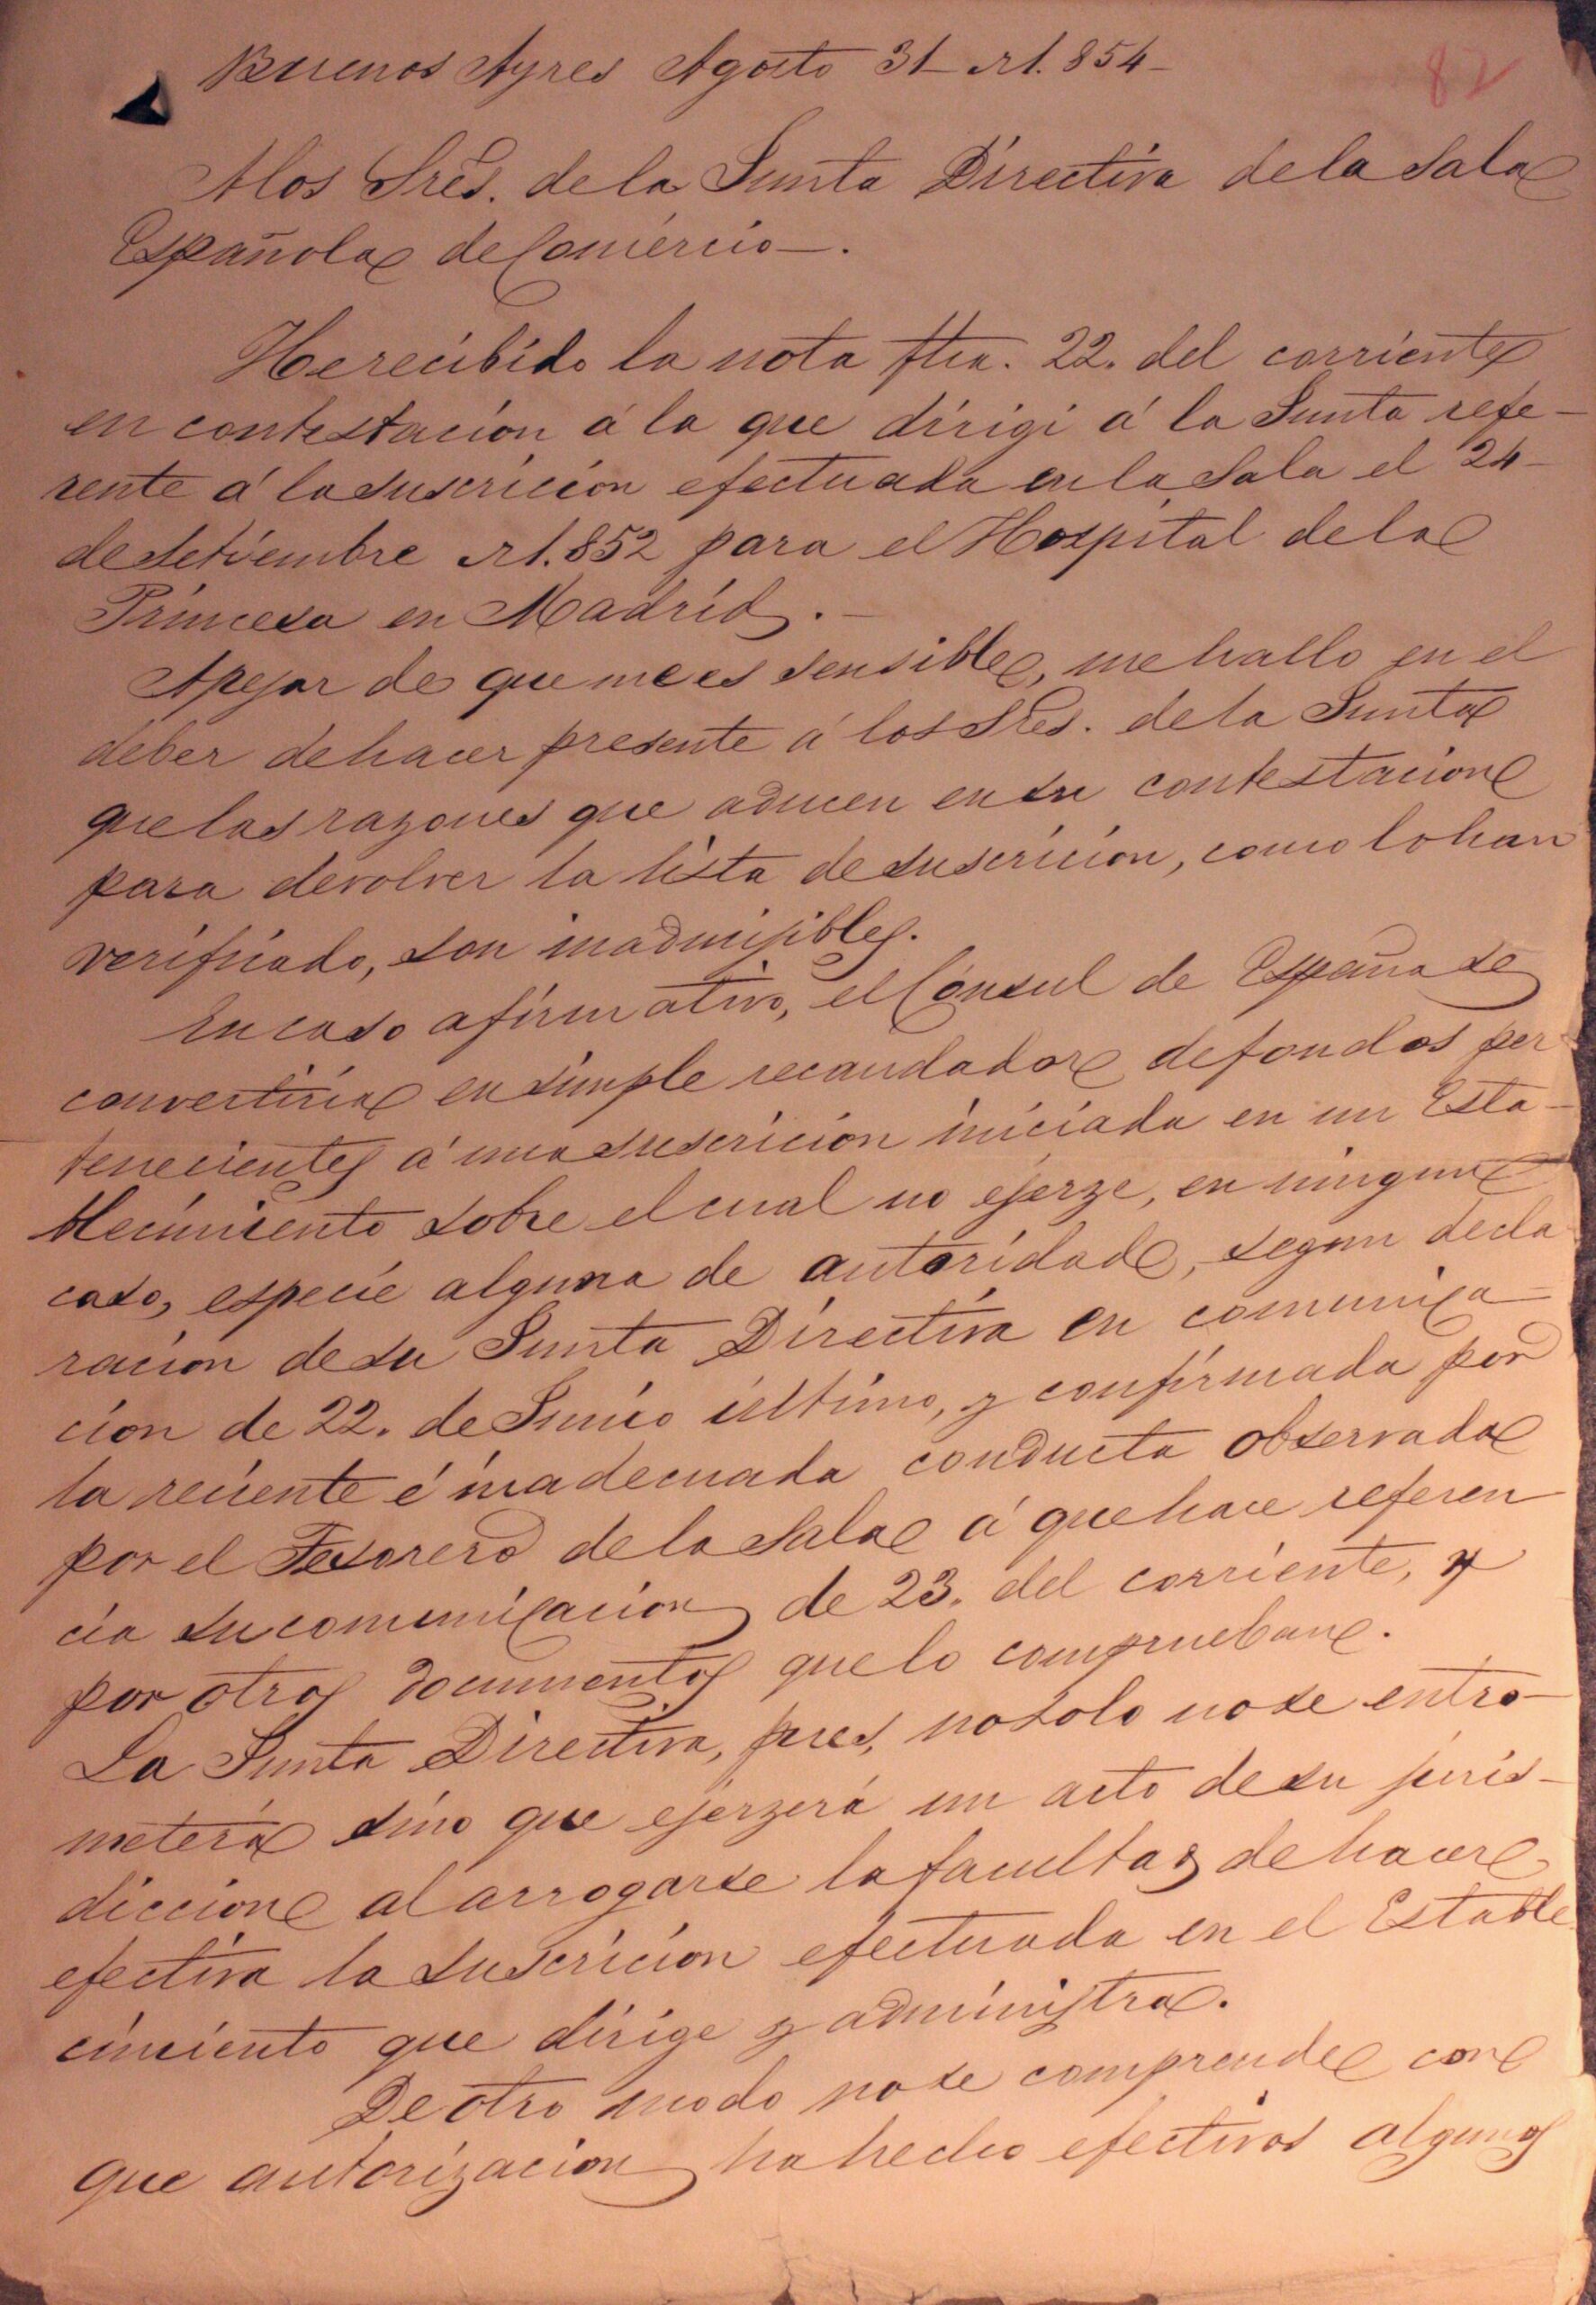 Buenos Ayres Agosto 31 - de 1.854 -
82
A los Sres. de la Junta Directiva de la Sala
Española de Comercio -.
He recibido la nota fha. 22. del corriente
en contestacion á la que dirigi á la Junta refe-
rente á la suscricion efectuada en la Sala el 24 -
de Setiembre de 1.852 para el Hospital de la
Princesa en Madrid. -
Apesar de que me es sensible, me hallo en el
deber de hacer presente á los Sres. de la Junta
que las razones que aducen en su contestacion
para devolver la lista de suscricion, como lo han
verificado, son inadmisibles.
En caso afirmativo, el Cónsul de España se
convertiria en simple recaudador de fondos per
tenecientes á una suscricion iniciada en un Esta-
blecimiento sobre el cual no ejerze, en ningun
caso, especie alguna de autoridad, segun decla
racion de su Junta Directiva en comunica-
cion de 22. de Junio último, y confirmada por
la reciente é inadecuada conducta observada
por el Tesorero de la Sala á que hace referen
cia su comunicacion de 23. del corriente, y
por otros documentos que lo comprueban.
La Junta Directiva, pues, no solo no se entro-
meterá sino que ejerzerá un acto de su juris-
diccion al arrogarse la facultad de hacer
efectiva la suscricion efectuada en el Estable
cimiento que dirige y administra.
De otro modo no se comprende con
que autorizacion ha hecho efectivos algunos